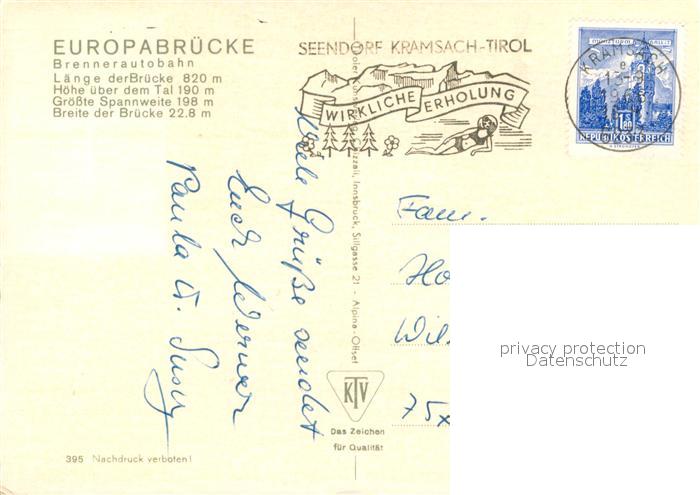 EUROPABRÜCKE
Brennerautobahn
Länge der Brücke 820 m
Höhe über dem Tal 190 m
Größte Spannweite 198 m
Breite der Brücke 22.8 m
SEENDORF KRAMSACH-TIROL
WIRKLICHE ERHOLUNG
KRAMSACH
REPUBLIK ÖSTERREICH
Viele Grüße sendet
Euch Werner
Paula u. Susy
Innsbruck, Sillgasse 21 - Alpina-Offset
Fam.
Ho
Wil
75x
privacy protection
Datenschutz
KTV
Das Zeichen
für Qualität
395 Nachdruck verboten!